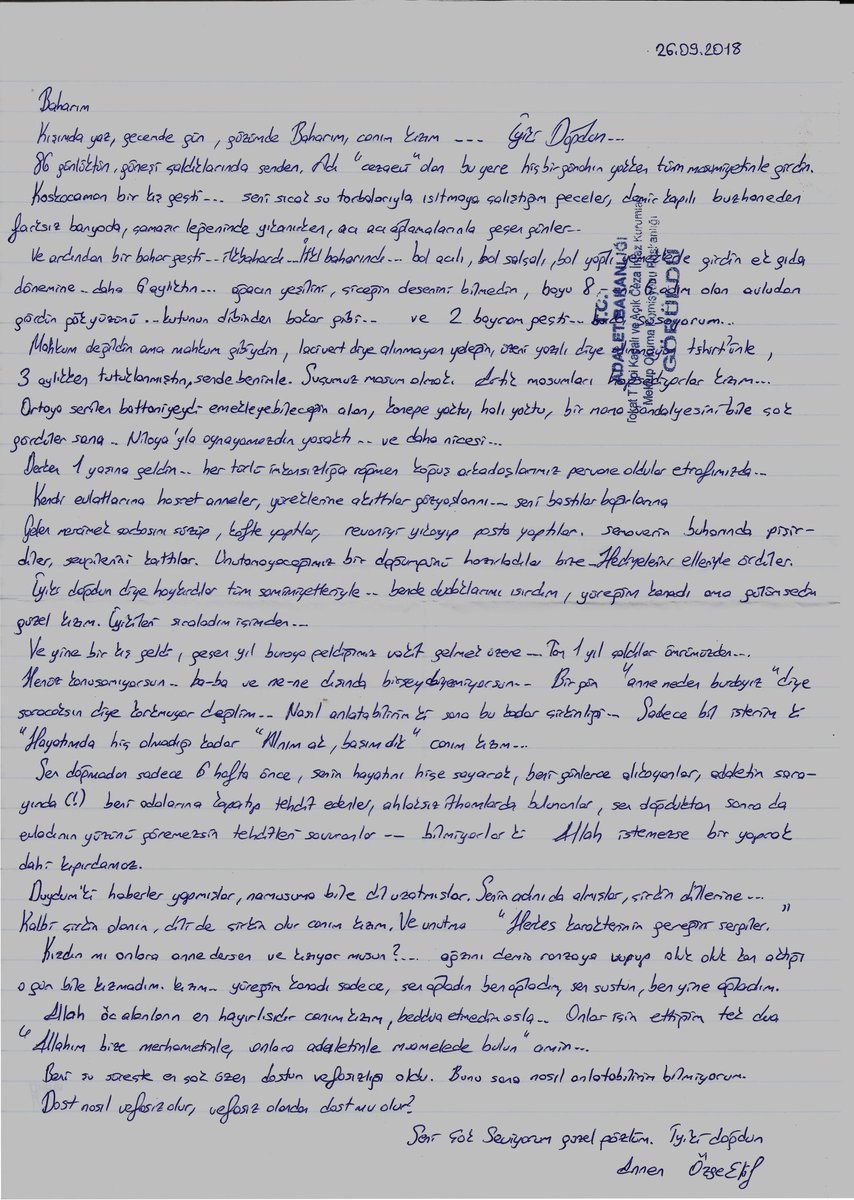 26.09.2018
Baharım
Kışımda yaz, gecemde gün, gözümde Baharım, canım kızım --- İyiki Doğdun...
86 günlüktün, güneşi çaldıklarında senden. Adı "cezaevi" olan bu yere hiçbir günahın yokken tüm masumiyetinle girdin.
Koskocaman bir kış geçti... seni sıcak su torbalarıyla ısıtmaya çalıştığım geceler, demir kapılı buzhaneden
farksız banyoda, çamaşır leğeninde yıkanırken, acı acı ağlamalarınla geçen günler..
Ve ardından bir bahar geçti... ilkbahardı.. İlk baharındı... bol acılı, bol salçalı, bol yağlı girdin ek gıda
dönemine.. daha 6 aylıktın... ağacın yeşilini, çiçeğin desenini bilmedin, boyu 8 6 adım olan avludan
gördün gökyüzünü.. kutunun dibinden bakar gibi... ve 2 bayram geçti..
Mahkum değildin ama mahkum gibiydin, lacivert diye alınmayan yeleğin, üzeri yazılı diye tshirt'ünle,
3 aylıkken tutuklanmıştın, sende benimle. Suçumuz masum olmak. Artık masumları kızım...
Ortaya serilen battaniyeydi emekleyebileceğin alan, kanepe yoktu, halı yoktu, bir mama sandalyesini bile çok
gördüler sana.. Niloya'yla oynayamazdın yasaktı.. ve daha nicesi...
Derken 1 yaşına geldin.. her türlü imkansızlığa rağmen koğuş arkadaşlarımız pervane oldular etrafımızda..
Kendi evlatlarına hasret anneler, yüreklerine akıttılar gözyaşlarını... seni bastılar bağırlarına
Gelen mercimek çorbasını süzüp, köfte yaptılar, revaniyi yıkayıp pasta yaptılar. semaverin buharında pişir-
diler, sevgilerini kattılar. Unutamayacağımız bir doğumgünü hazırladılar bize.. Hediyelerini elleriyle ördüler.
İyiki doğdun diye haykırdılar tüm samimiyetleriyle.. bende dudaklarımı ısırdım, yüreğim kanadı ama gülümsedim
güzel kızım. İyikileri sıraladım içimden...
Ve yine bir kış geldi, geçen yıl buraya geldiğimiz vakit gelmek üzere... Tam 1 yıl çaldılar ömrümüzden...
Henüz konuşamıyorsun.. ba-ba ve ne-ne dışında birşey diyemiyorsun.. Bir gün "anne neden burdayız" diye
soracaksın diye korkmuyor değilim.. Nasıl anlatabilirim ki sana bu kadar çirkinliği.. Sadece bil isterim ki
"Hayatımda hiç olmadığı kadar "Alnım ak, başım dik" canım kızım...
Sen doğmadan sadece 6 hafta önce, senin hayatını hiçe sayarak, beni günlerce alıkoyanlar, adaletin sara-
yında (!) beni odalarına kapatıp tehdit edenler, ahlaksız ithamlarda bulunanlar, sen doğduktan sonra da
evladının yüzünü göremezsin tehditleri savuranlar --- bilmiyorlar ki Allah istemezse bir yaprak
dahi kıpırdamaz.
Duydum'ki haberler yapmışlar, namusuma bile dil uzatmışlar. Senin adını da almışlar, çirkin dillerine...
Kalbi çirkin olanın, dili de çirkin olur canım kızım. Ve unutma "Herkes karakterinin gereğini sergiler."
Kızdın mı onlara anne dersen ve kızıyor musun?... ağzını demir ranzaya vurup oluk oluk kan aktığı
o gün bile kızmadım. kızım.. yüreğim kanadı sadece, sen ağladın ben ağladım, sen sustun, ben yine ağladım.
Allah öc alanların en hayırlısıdır canım kızım, beddua etmedim asla... Onlar için ettiğim tek dua
"Allahım bize merhametinle, onlara adaletinle muamelede bulun" amin...
Beni şu süreçte en çok üzen dostun vefasızlığı oldu. Bunu sana nasıl anlatabilirim bilmiyorum.
Dost nasıl vefasız olur, vefasız olandan dost mu olur?
Seni Çok Seviyorum güzel gözlüm. İyiki doğdun
Annen Özge Elif
T.C.
ADALET BAKANLIĞI
Tokat T Tipi Kapalı ve Açık Ceza İnfaz Kurumları
Mektup Okuma Komisyonu Başkanlığı
GÖRÜLDÜ